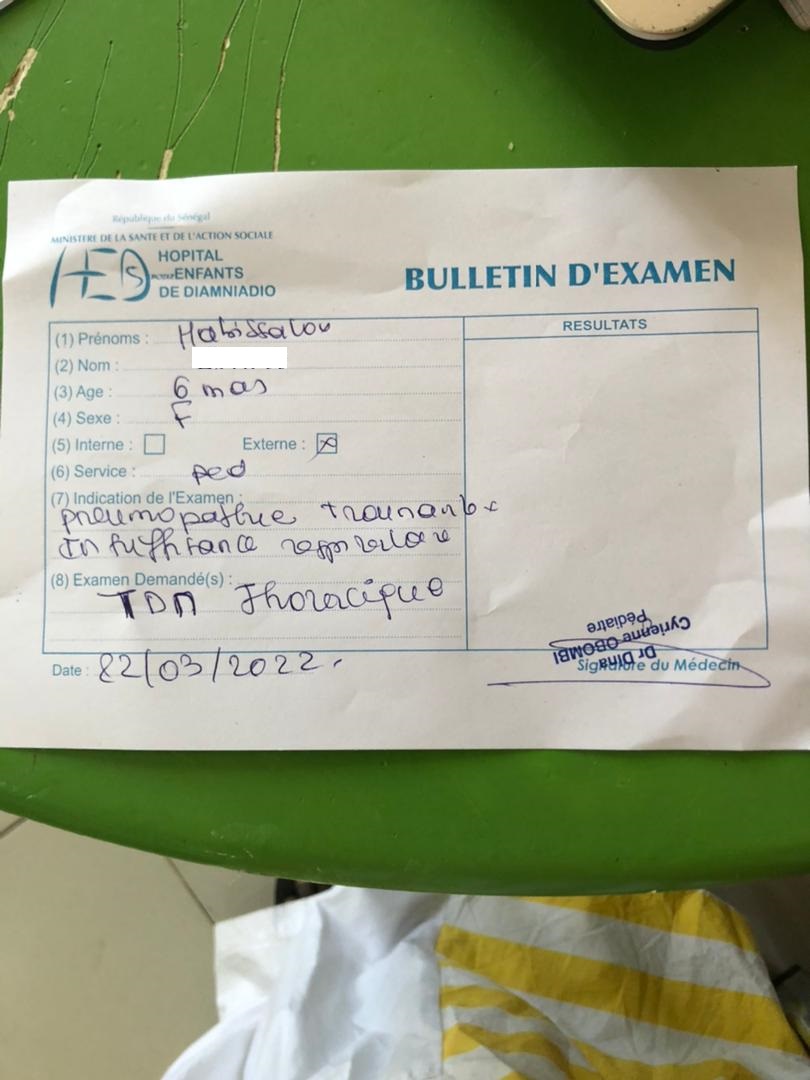 République du Sénégal
MINISTERE DE LA SANTE ET DE L'ACTION SOCIALE
HOPITAL
ENFANTS
DE DIAMNIADIO
BULLETIN D'EXAMEN
(1) Prénoms : Habissatou
(2) Nom :
(3) Age : 6 mois
(4) Sexe : F
(5) Interne : Externe : x
(6) Service : ped
(7) Indication de l'Examen :
pneumopathie trainante
Insuffisance respiratoire
(8) Examen Demandé(s) :
TDM Thoracique
Date : /03/2022.
RESULTATS
Signature du Médecin
Dr Dina
Cyrienne OBOMBI
Pédiatre